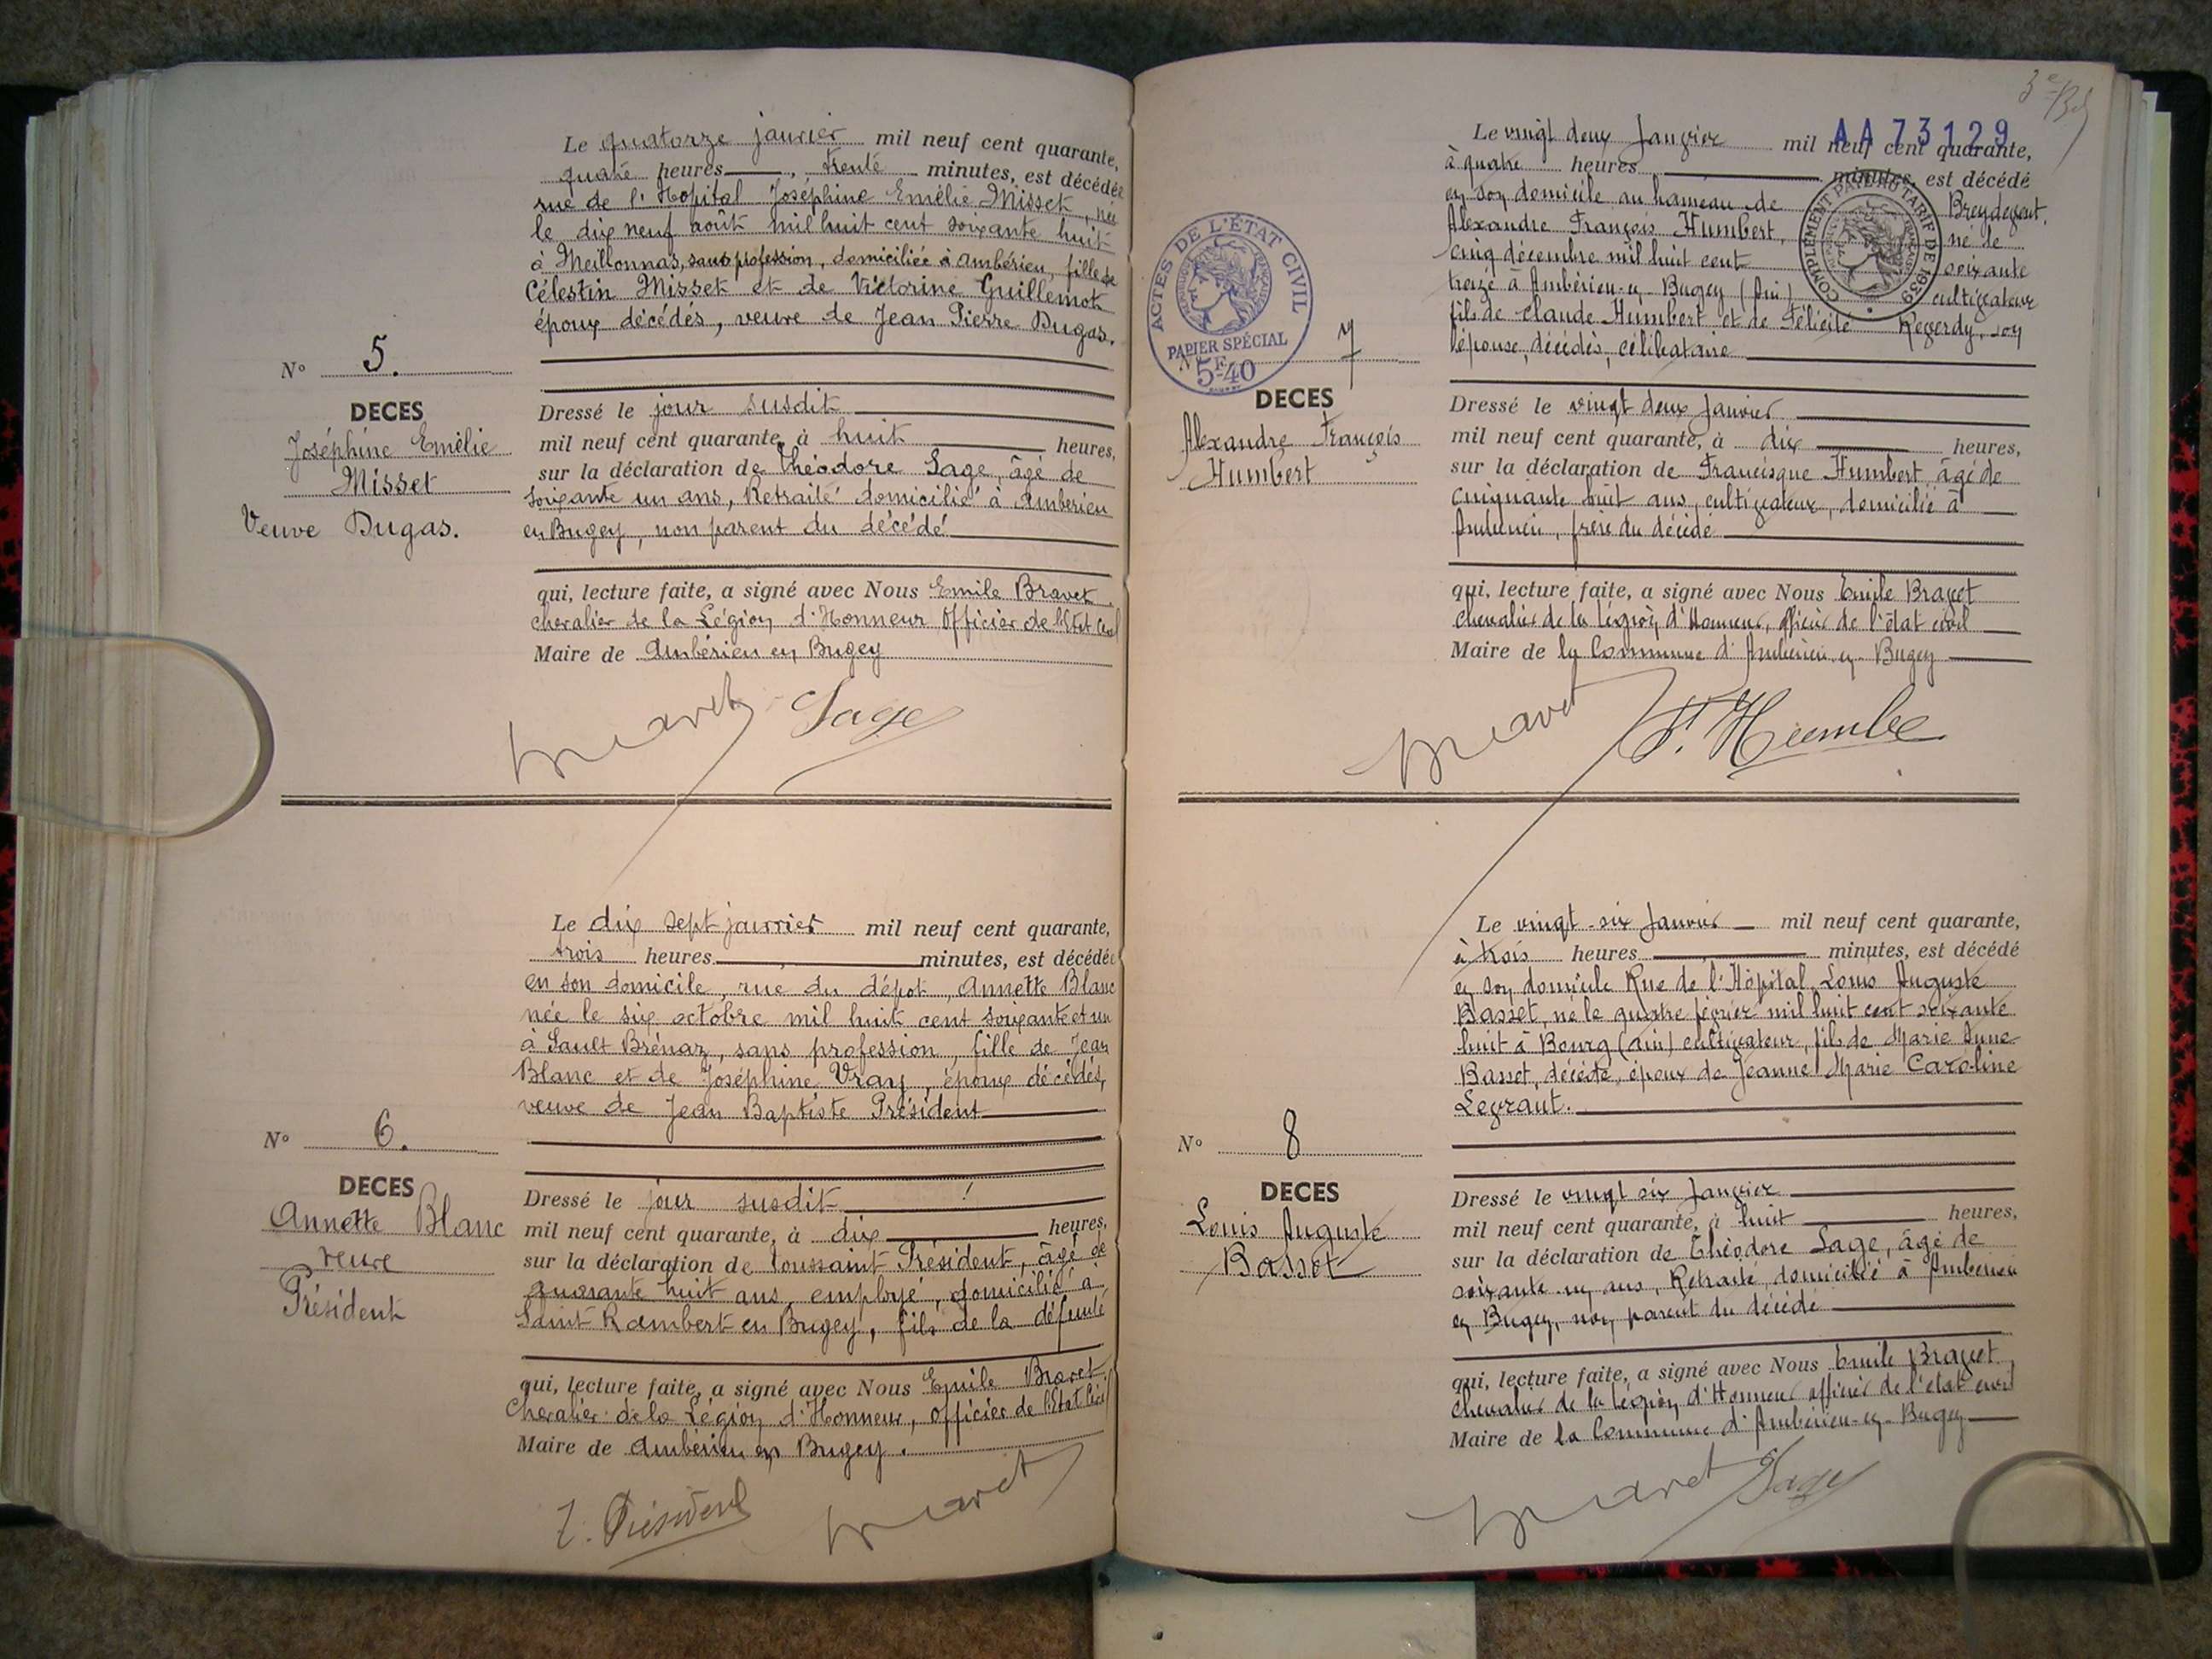 Le quatorze janvier mil neuf cent quarante,
quatre heures, trente minutes, est décédée
rue de l'Hopital Joséphine Emélie Misset, née
le dix neuf août mil huit cent soixante huit
à Meillonnas, sans profession, domiciliée à Ambérieu, fille de
Célestin Misset et de Victorine Guillemot
époux décédés, veuve de Jean Pierre Dugas.
N° 5.
DECES
Joséphine Emélie
Misset
Veuve Dugas.
Dressé le jour susdit
mil neuf cent quarante, à huit heures,
sur la déclaration de Théodore Sage, âgé de
soixante un ans, Retraité domicilié à Amberieu
en Bugey, non parent du décédé
qui, lecture faite, a signé avec Nous Emile Bravet
chevalier de la Légion d'Honneur Officier de l'Etat Civil
Maire de Ambérieu en Bugey
Bravet Sage
Le dix sept janvier mil neuf cent quarante,
trois heures, minutes, est décédée
en son domicile, rue du dépot, Annette Blanc
née le six octobre mil huit cent soixante et un
à Sault Brénaz, sans profession, fille de Jean
Blanc et de Joséphine Vray, époux décédés,
veuve de Jean Baptiste Président
N° 6.
DECES
Annette Blanc
veuve
Président
Dressé le jour susdit
mil neuf cent quarante, à dix heures,
sur la déclaration de Toussaint Président, âgé de
quarante huit ans, employé, domicilié à
Saint Rambert en Bugey, fils de la défunte
qui, lecture faite, a signé avec Nous Emile Bravet,
Chevalier de la Légion d'Honneur, Officier de l'Etat Civil
Maire de Ambérieu en Bugey.
T. Président Bravet
AA 73129
Le vingt deux Janvier mil neuf cent quarante,
à quatre heures minutes, est décédé
en son domicile au hameau de Breydevent,
Alexandre François Humbert, né le
cinq décembre mil huit cent soixante
treize à Ambérieu-en-Bugey (Ain) cultivateur
fils de Claude Humbert et de Félicité Reverdy, son
épouse, décédés, célibataire
COMPLÉMENT PAYÉ AU TARIF DE 1939
ACTES DE L'ÉTAT CIVIL
PAPIER SPÉCIAL
5F-40
N° 7
DECES
Alexandre François
Humbert
Dressé le vingt deux Janvier
mil neuf cent quarante, à dix heures,
sur la déclaration de Francisque Humbert, âgé de
cinquante huit ans, cultivateur, domicilié à
Ambérieu, frère du décédé
qui, lecture faite, a signé avec Nous Emile Bravet
chevalier de la Légion d'Honneur, officier de l'état civil
Maire de la Commune d'Ambérieu-en-Bugey
Bravet F. Humbe
Le vingt-six Janvier mil neuf cent quarante,
à trois heures, minutes, est décédé
en son domicile Rue de l'Hôpital, Louis Auguste
Basset, né le quatre février mil huit cent soixante
huit à Bourg (Ain) cultivateur, fils de Marie Anne
Basset, décédée, époux de Jeanne Marie Caroline
Legraut.
N° 8
DECES
Louis Auguste
Basset
Dressé le vingt six Janvier
mil neuf cent quarante, à huit heures,
sur la déclaration de Théodore Sage, âgé de
soixante-un ans, Retraité, domicilié à Amberieu
en Bugey, non parent du décédé
qui, lecture faite, a signé avec Nous Emile Bravet,
Chevalier de la Légion d'Honneur officier de l'état civil
Maire de la Commune d'Ambérieu-en-Bugey
Bravet Sage